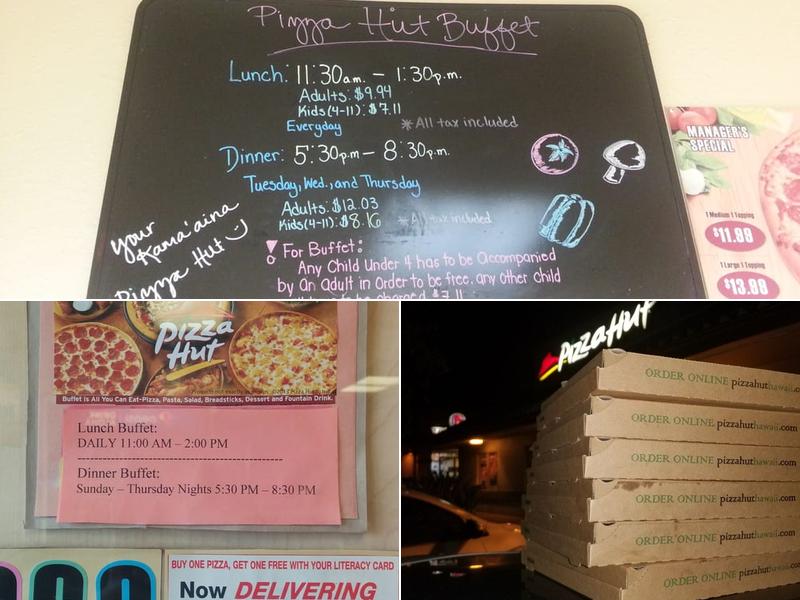 Pizza Hut Buffet
Lunch: 11:30a.m. – 1:30p.m.
Adults: $9.94
Kids (4-11): $7.11
Everyday *All tax included
Dinner: 5:30p.m – 8:30p.m.
Tuesday, Wed., and Thursday
Adults: $12.03
Kids (4-11): $8.16 *All tax included
your
Kama'aina
Pizza Hut
! For Buffet:
Any Child Under 4 has to be Accompanied
by An Adult in Order to be free. any other child
MANAGER'S
SPECIAL
1 Medium 1 Topping
$11.99
1 Large 1 Topping
$13.99
Pizza
Hut
Buffet is All You Can Eat-Pizza, Pasta, Salad, Breadsticks, Dessert and Fountain Drink.
Lunch Buffet:
DAILY 11:00 AM – 2:00 PM
Dinner Buffet:
Sunday – Thursday Nights 5:30 PM – 8:30 PM
BUY ONE PIZZA, GET ONE FREE WITH YOUR LITERACY CARD
Now DELIVERING
Pizza Hut
ORDER ONLINE pizzahuthawaii.co
ORDER ONLINE pizzahuthawaii.com
ORDER ONLINE pizzahuthawaii.com
ORDER ONLINE pizzahuthawaii.com
ORDER ONLINE pizzahuthawaii.com
ORDER ONLINE pizzahuthawaii.com